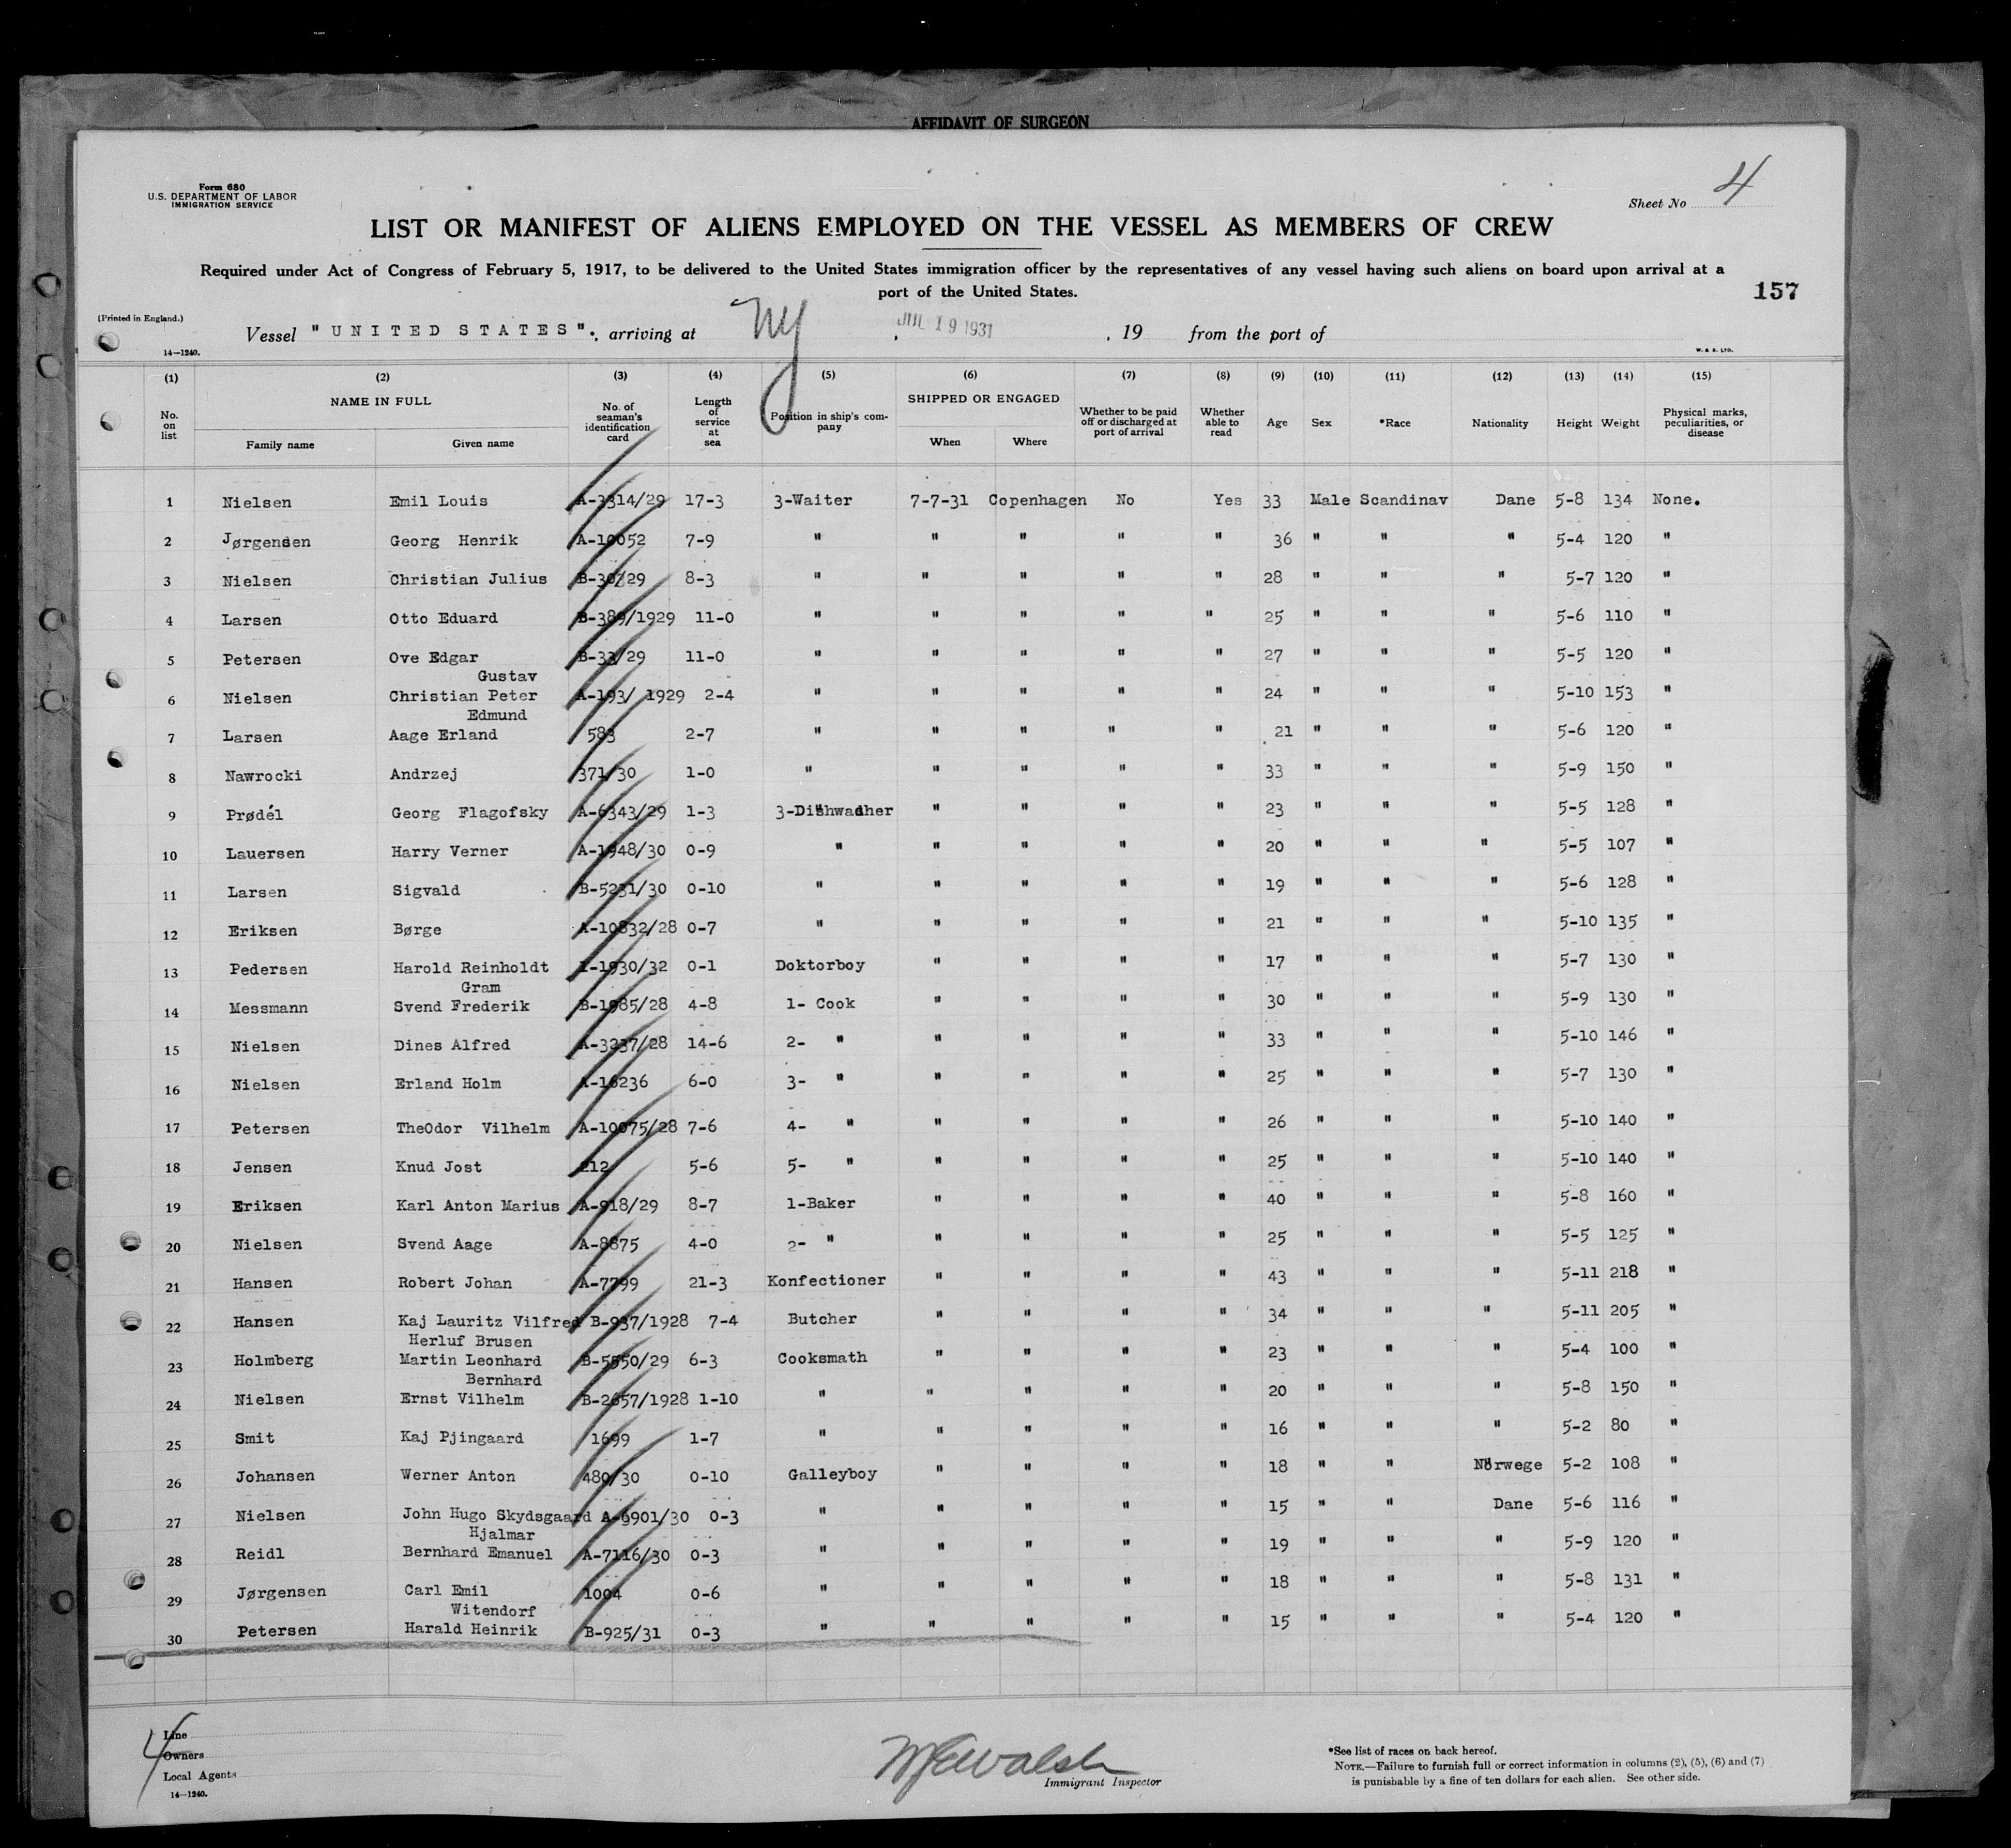 AFFIDAVIT OF SURGEON
Form 680
U.S. DEPARTMENT OF LABOR
IMMIGRATION SERVICE
Sheet No 4
LIST OR MANIFEST OF ALIENS EMPLOYED ON THE VESSEL AS MEMBERS OF CREW
Required under Act of Congress of February 5, 1917, to be delivered to the United States immigration officer by the representatives of any vessel having such aliens on board upon arrival at a
port of the United States.
157
(Printed in England.)
Vessel "UNITED STATES"., arriving at NY, JUL 19 1931, 19 from the port of
14—1240.
W. & S. LTD.
(1) (2) (3) (4) (5) (6) (7) (8) (9) (10) (11) (12) (13) (14) (15)
No. on list NAME IN FULL Family name Given name No. of seaman's identification card Length of service at sea Position in ship's com-pany SHIPPED OR ENGAGED When Where Whether to be paid off or discharged at port of arrival Whether able to read Age Sex *Race Nationality Height Weight Physical marks, peculiarities, or disease
1 Nielsen Emil Louis A-3314/29 17-3 3-Waiter 7-7-31 Copenhagen No Yes 33 Male Scandinav Dane 5-8 134 None.
2 Jørgensen Georg Henrik A-10052 7-9 " " " " " 36 " " " 5-4 120 "
3 Nielsen Christian Julius B-30/29 8-3 " " " " " 28 " " " 5-7 120 "
4 Larsen Otto Eduard B-389/1929 11-0 " " " " " 25 " " " 5-6 110 "
5 Petersen Ove Edgar B-33/29 11-0 " " " " " 27 " " " 5-5 120 "
Gustav
6 Nielsen Christian Peter A-193/ 1929 2-4 " " " " " 24 " " " 5-10 153 "
Edmund
7 Larsen Aage Erland 583 2-7 " " " " " 21 " " " 5-6 120 "
8 Nawrocki Andrzej 371/30 1-0 " " " " " 33 " " " 5-9 150 "
9 Prødél Georg Flagofsky A-6343/29 1-3 3-Dishwadher " " " " 23 " " " 5-5 128 "
10 Lauersen Harry Verner A-1948/30 0-9 " " " " " 20 " " " 5-5 107 "
11 Larsen Sigvald B-5231/30 0-10 " " " " " 19 " " " 5-6 128 "
12 Eriksen Børge A-10832/28 0-7 " " " " " 21 " " " 5-10 135 "
13 Pedersen Harold Reinholdt 1-1930/32 0-1 Doktorboy " " " " 17 " " " 5-7 130 "
Gram
14 Messmann Svend Frederik B-1985/28 4-8 1- Cook " " " " 30 " " " 5-9 130 "
15 Nielsen Dines Alfred A-3237/28 14-6 2- " " " " " 33 " " " 5-10 146 "
16 Nielsen Erland Holm A-16236 6-0 3- " " " " " 25 " " " 5-7 130 "
17 Petersen TheOdor Vilhelm A-10075/28 7-6 4- " " " " " 26 " " " 5-10 140 "
18 Jensen Knud Jost 212 5-6 5- " " " " " 25 " " " 5-10 140 "
19 Eriksen Karl Anton Marius A-918/29 8-7 1-Baker " " " " 40 " " " 5-8 160 "
20 Nielsen Svend Aage A-8875 4-0 2- " " " " " 25 " " " 5-5 125 "
21 Hansen Robert Johan A-7799 21-3 Konfectioner " " " " 43 " " " 5-11 218 "
22 Hansen Kaj Lauritz Vilfred B-937/1928 7-4 Butcher " " " " 34 " " " 5-11 205 "
Herluf Brusen
23 Holmberg Martin Leonhard B-5550/29 6-3 Cooksmath " " " " 23 " " " 5-4 100 "
Bernhard
24 Nielsen Ernst Vilhelm B-2657/1928 1-10 " " " " " 20 " " " 5-8 150 "
25 Smit Kaj Pjingaard 1699 1-7 " " " " " 16 " " " 5-2 80 "
26 Johansen Werner Anton 480/30 0-10 Galleyboy " " " " 18 " " Norwege 5-2 108 "
27 Nielsen John Hugo Skydsgaard A-6901/30 0-3 " " " " " 15 " " Dane 5-6 116 "
Hjalmar
28 Reidl Bernhard Emanuel A-7116/30 0-3 " " " " " 19 " " " 5-9 120 "
29 Jørgensen Carl Emil 1004 0-6 " " " " " 18 " " " 5-8 131 "
Witendorf
30 Petersen Harald Heinrik B-925/31 0-3 " " " " " 15 " " " 5-4 120 "
4
Line
Owners
Local Agents
14—1240.
Walsh
Immigrant Inspector
*See list of races on back hereof.
NOTE.—Failure to furnish full or correct information in columns (2), (5), (6) and (7)
is punishable by a fine of ten dollars for each alien. See other side.